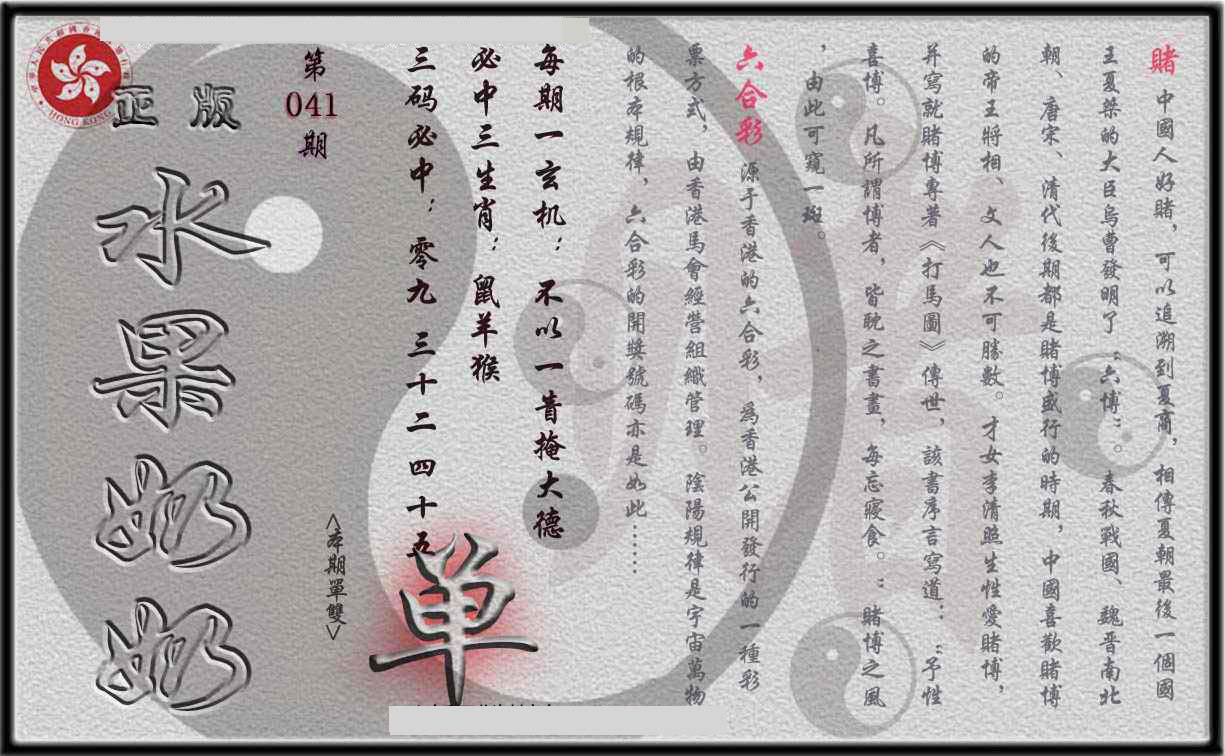 賭 中國人好賭，可以追溯到夏商，相傳夏朝最後一個國
王夏桀的大臣烏曹發明了“六博”。春秋戰國、魏晋南北
朝、唐宋、清代後期都是賭博盛行的時期，中國喜歡賭博
的帝王將相、文人也不可勝數。才女李清照生性愛賭博，
并寫就賭博專著《打馬圖》傳世，該書序言寫道：“予性
喜博。凡所謂博者，皆耽之晝，每忘寢食。”賭博之風
，由此可窺一斑。
六合彩 源于香港的六合彩，為香港公開發行的一種彩
票方式，由香港馬會經營組織管理。陰陽規律是宇宙萬物
的根本規律，六合彩的開獎號碼亦是如此……
每期一玄机：不以一眚掩大德
必中三生肖：鼠羊猴
三码必中：零九 三十二 四十五
第
041
期
正版
水果奶奶
<本期單雙>
単
HONG KONG